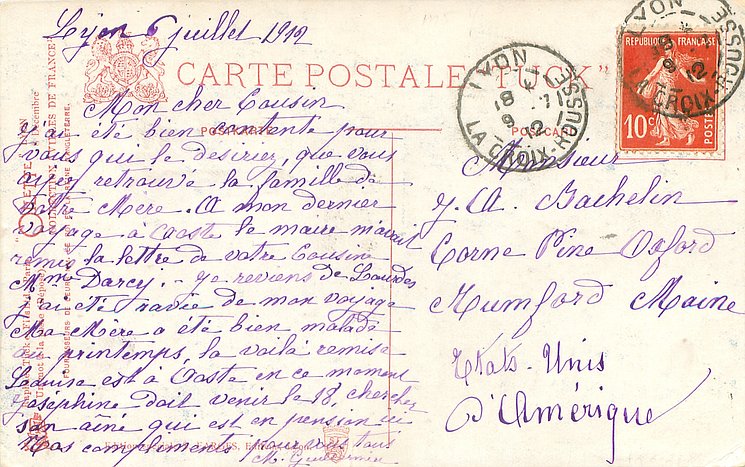 Lyon 6 juillet 1912
CARTE POSTALE "TUCK"
POSTCARD
LYON
18
9 12
LA CROIX-ROUSSE
LYON
LA CROIX-ROUSSE
REPUBLIQUE FRANÇAISE
10c
POSTES
Mon cher Cousin
J'ai été bien contente pour
vous qui le désiriez, que vous
ayez retrouvé la famille de
votre Mère. A mon dernier
voyage à Aoste le maire m'avait
remis la lettre de votre Cousine
Mme Darcy. Je reviens de Lourdes
j'ai été ravie de mon voyage
Ma Mère a été bien malade
au printemps, la voilà remise
Louise est à Aoste en ce moment
Joséphine doit venir le 18, chercher
son aîné qui est en pension ici
Mes compliments pour vous tous
M.
Monsieur
J. A. Bachelin
Corne Pine Oxford
Mumford Maine
Etats-Unis
d'Amérique